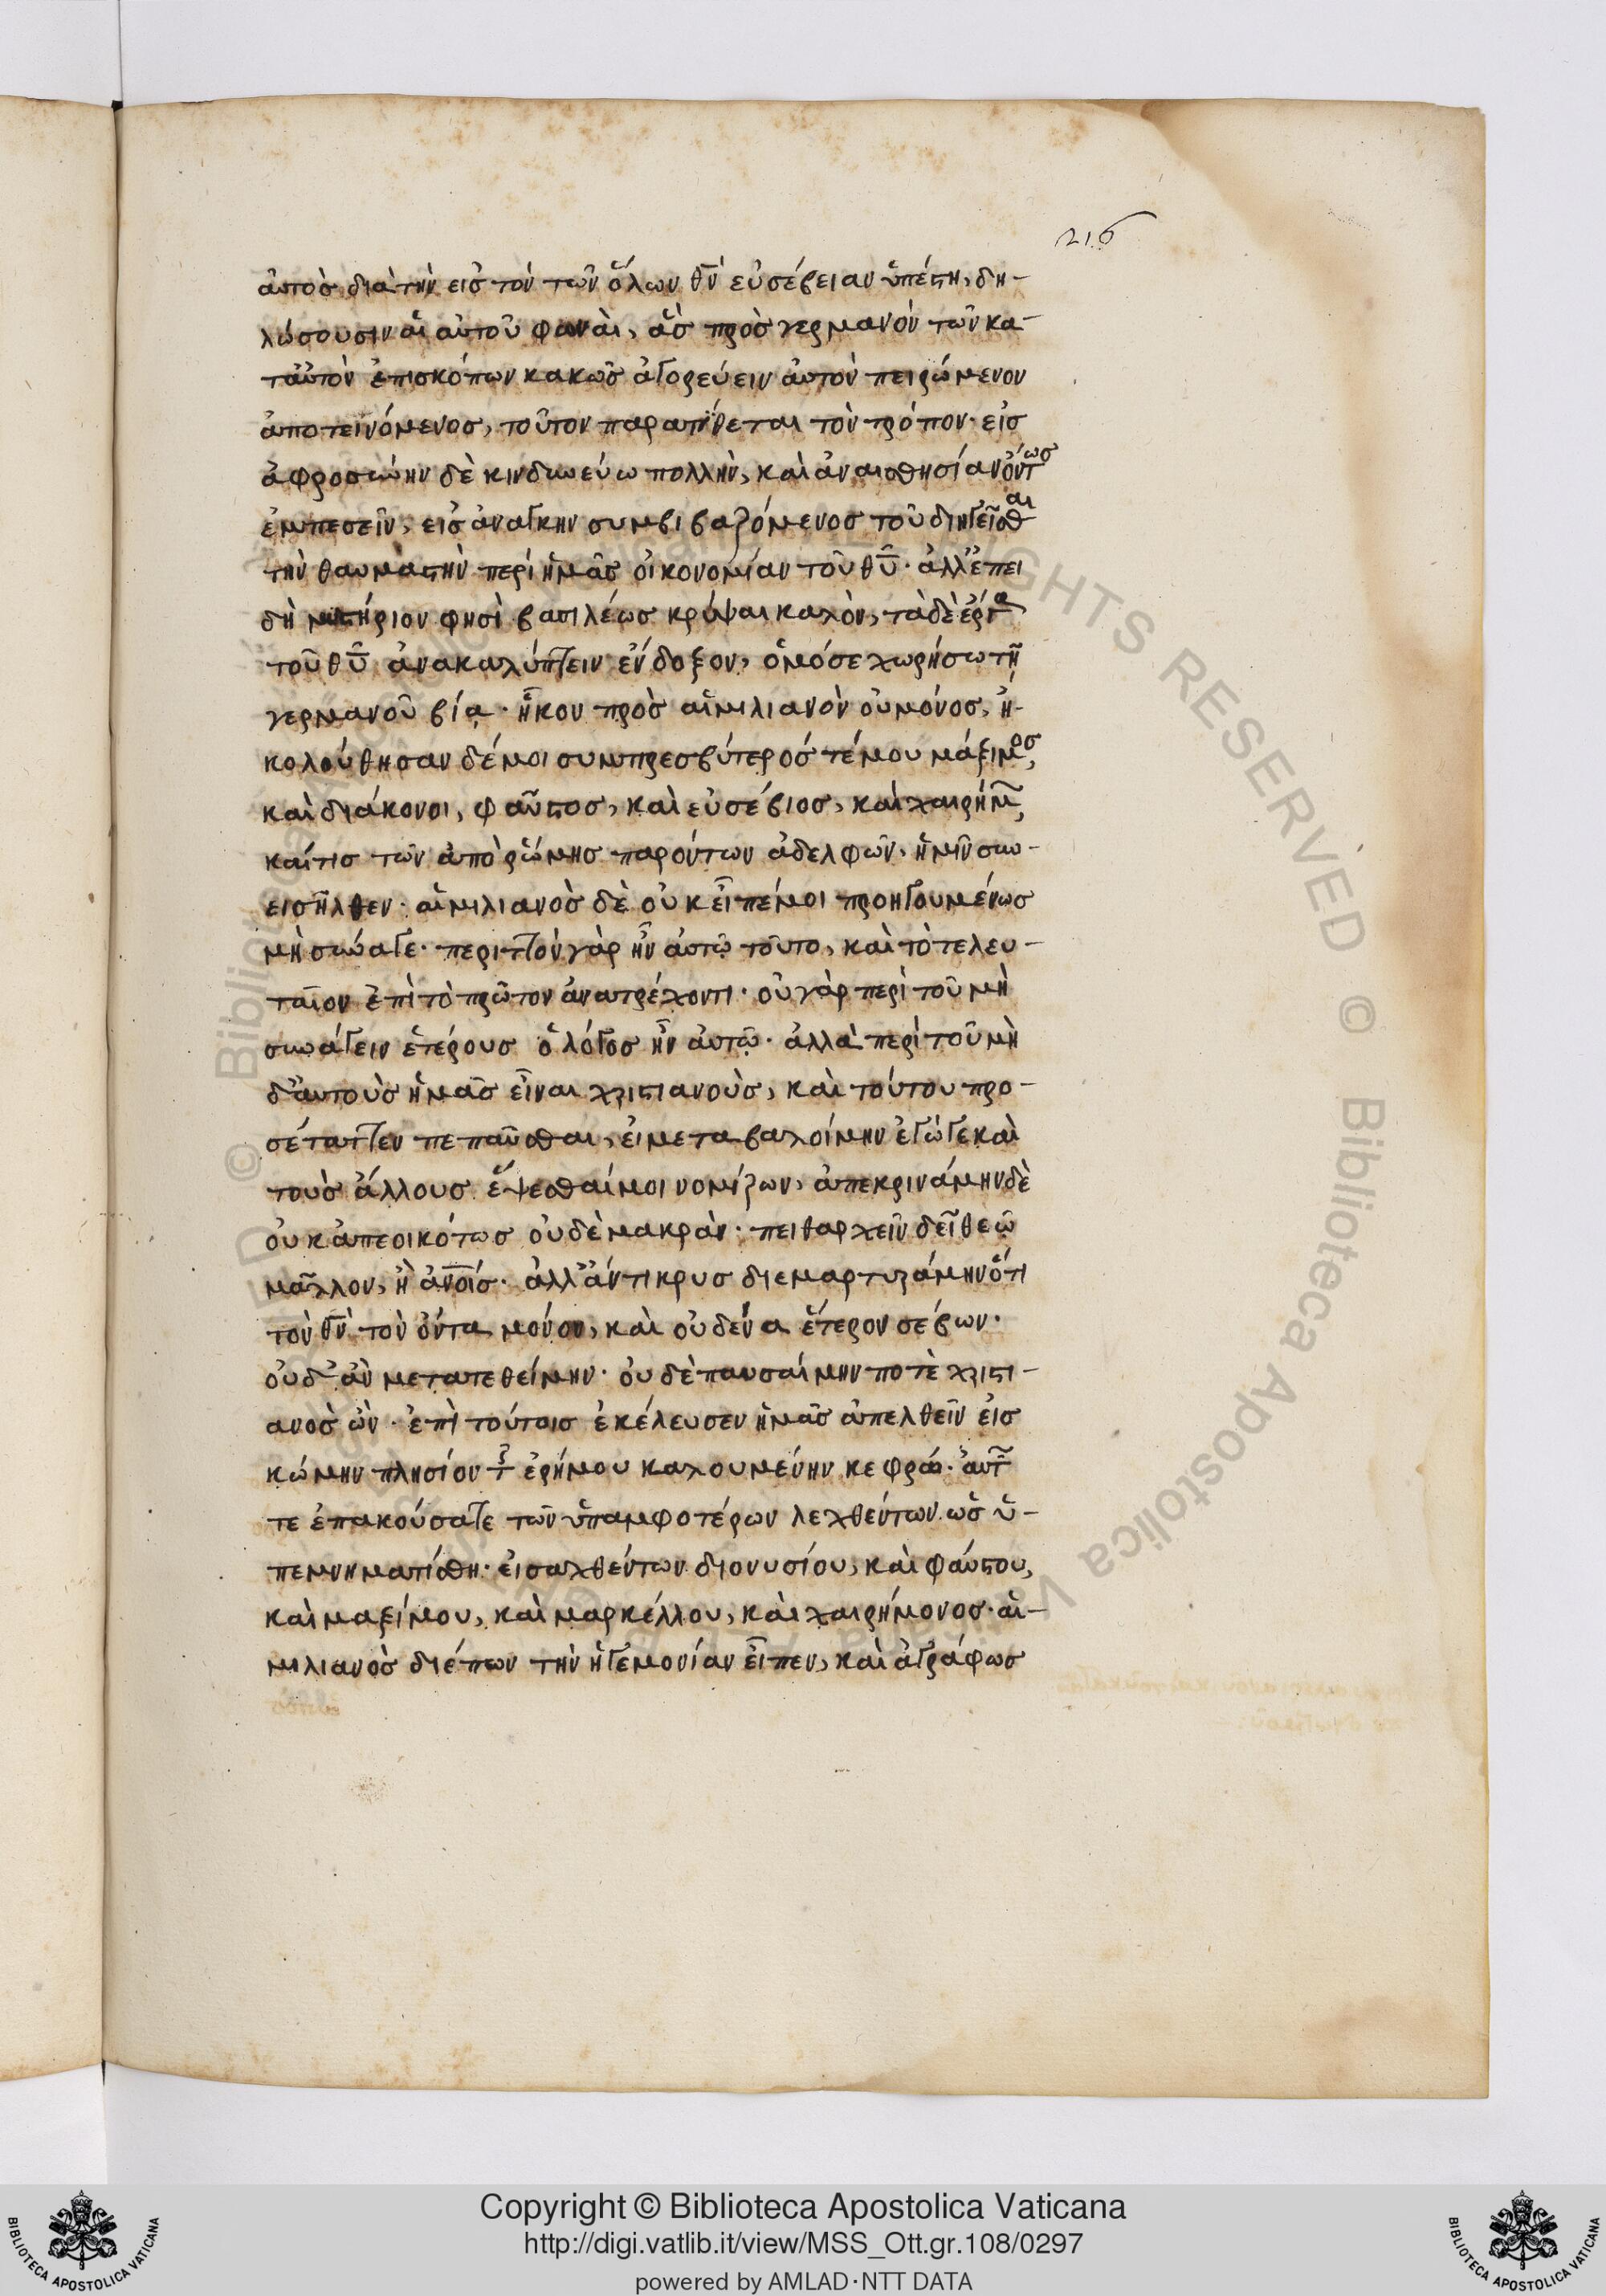 216
αὐτὸς διὰ τὴν εἰς τὸν τῶν ὅλων θν εὐσέβειαν ὑπέστη, δη-
λώσουσιν αἱ αὐτοῦ φωναὶ, ἃς πρὸς γερμανὸν τῶν κα-
τ᾽ αὐτὸν ἐπισκόπων κακῶς ἀγορεύειν αὐτὸν πειρώμενον
ἀποτεινόμενος, τοῦτον παρατίθεται τὸν τρόπον· εἰς
ἀφροσύνην δὲ κινδυνεύω πολλὴν, καὶ ἀναισθησίαν ὄντως
ἐμπεσεῖν, εἰς ἀνάγκην συμβιβαζόμενος τοῦ διηγεῖσθαι
τὴν θαυμαστὴν περὶ ἡμᾶς οἰκονομίαν τοῦ θυ· ἀλλ᾽ ἐπει
δὴ μυστήριον φησὶ βασιλέως κρύψαι καλὸν, τὰ δὲ ἔργα
τοῦ θυ ἀνακαλύπτειν ἔνδοξον, ὁμόσε χωρήσω τῇ
γερμανοῦ βίᾳ· ἧκον πρὸς αἰμιλιανὸν οὐ μόνος, ἠ-
κολούθησαν δέ μοι συμπρεσβύτερός τέ μου μάξιμος,
καὶ διάκονοι, φαῦστος, καὶ εὐσέβιος, καὶ χαιρήμ,
καί τις τῶν ἀπὸ ῥώμης παρόντων ἀδελφῶν, ἡμῖν συν-
εισῆλθεν· αἰμιλιανὸς δὲ οὐκ εἶπέ μοι προηγουμένως
μὴ σύναγε· περιττὸν γὰρ ἦν αὐτῷ τοῦτο, καὶ τὸ τελευ-
ταῖον ἐπὶ τὸ πρῶτον ἀνατρέχοντι· οὐ γὰρ περὶ τοῦ μὴ
συνάγειν ἑτέρους ὁ λόγος ἦν αὐτῷ· ἀλλὰ περὶ τοῦ μὴ
δ᾽ αὐτοὺς ἡμᾶς εἶναι χριστιανοὺς, καὶ τούτου προ-
σέταττεν πεπαῦσθαι, εἰ μεταβαλοίμην ἐγώ γε καὶ
τοὺς ἄλλους ἕψεσθαί μοι νομίζων, ἀπεκρινάμην δὲ
οὐκ ἀπεοικότως οὐδὲ μακρὰν· πειθαρχεῖν δεῖ θεῷ
μᾶλλον, ἢ ἀνοις· ἀλλ᾽ ἄντικρυς διεμαρτυράμην ὅτι
τὸν θν τὸν ὄντα μόνον, καὶ οὐδένα ἕτερον σέβων·
οὐδ᾽ ἂν μετατεθείμην· οὐδὲ παυσαίμην ποτὲ χριστι-
ανὸς ὢν· ἐπὶ τούτοις ἐκέλευσεν ἡμᾶς ἀπελθεῖν εἰς
κώμην πλησίον τῆς ἐρήμου καλουμένην κεφρώ· αὐτ
τε ἐπακούσατε τῶν ὑπ᾽ ἀμφοτέρων λεχθέντων ὡς ὑ-
πεμνηματίσθη· εἰσαχθέντων διονυσίου, καὶ φαύστου,
καὶ μαξίμου, καὶ μαρκέλλου, καὶ χαιρήμονος· αἰ-
μιλιανὸς διέπων τὴν ἡγεμονίαν εἶπεν, καὶ ἀγράφως
© Biblioteca Apostolica Vaticana
ALL RIGHTS RESERVED
Copyright © Biblioteca Apostolica Vaticana
http://digi.vatlib.it/view/MSS_Ott.gr.108/0297
powered by AMLAD·NTT DATA
BIBLIOTECA APOSTOLICA VATICANA
BIBLIOTECA APOSTOLICA VATICANA